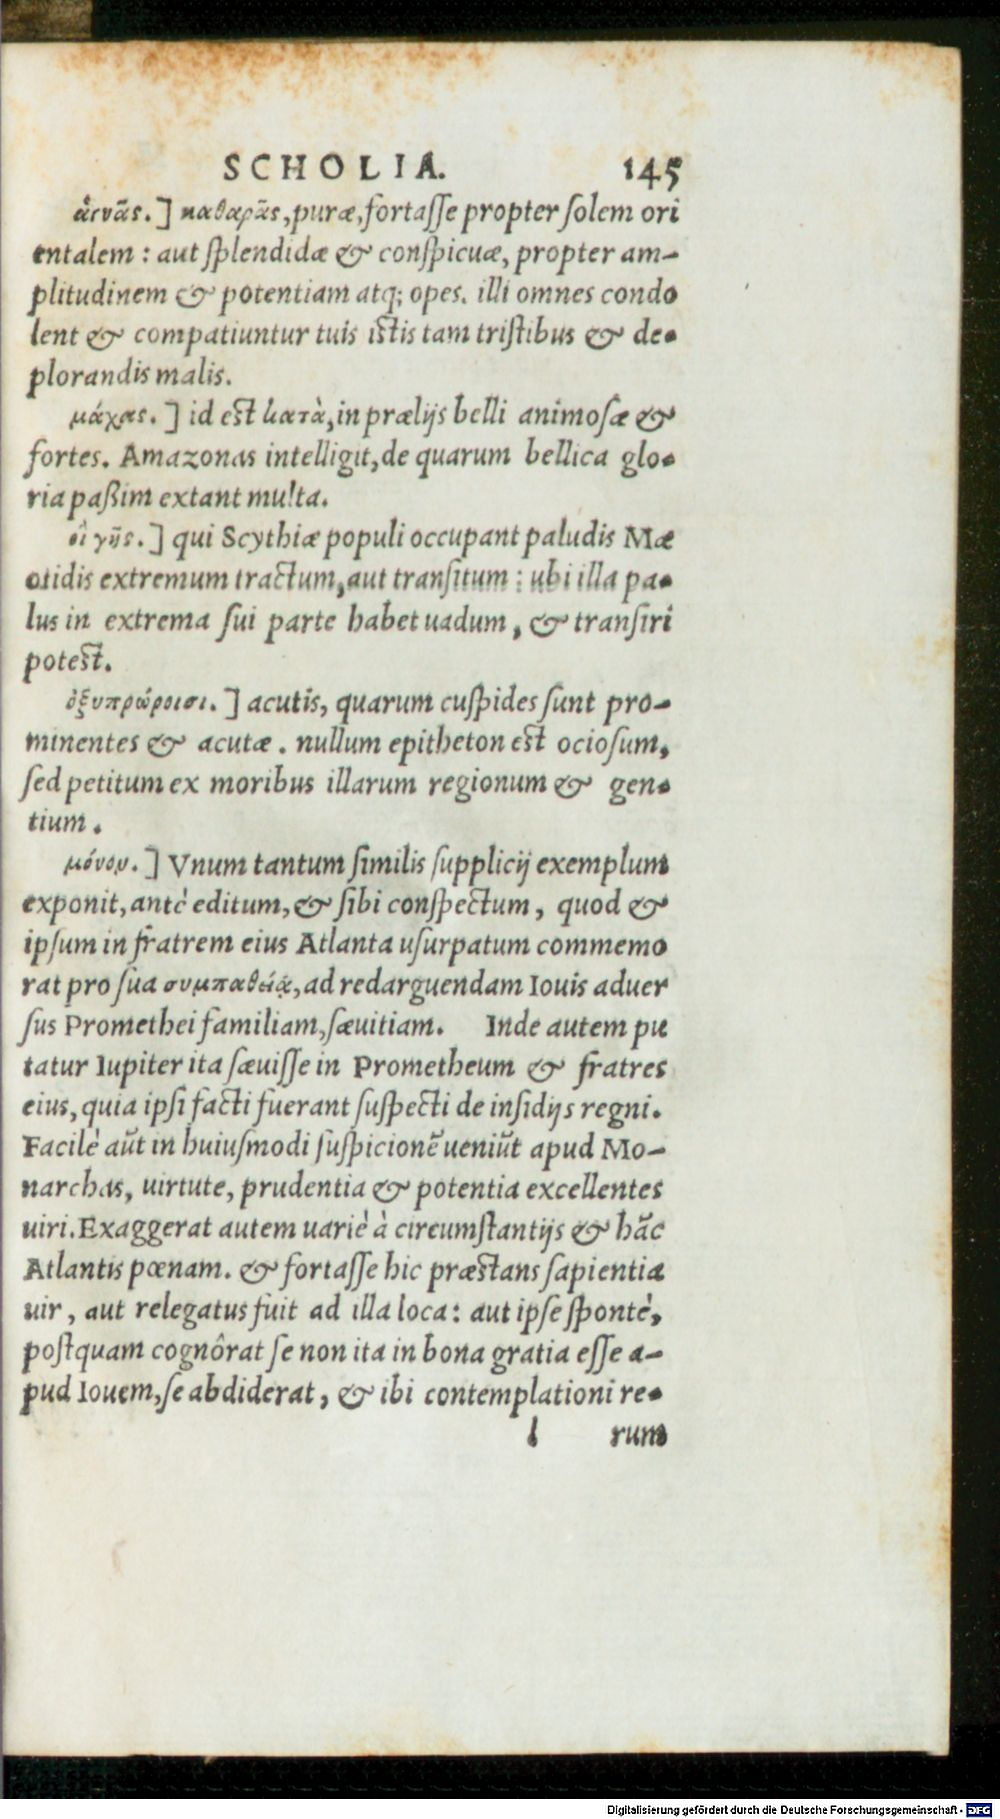 SCHOLIA. 145
ἁγνᾶς.] καθαρᾶς, puræ, fortasse propter solem ori
entalem : aut splendidæ & conspicuæ, propter am-
plitudinem & potentiam atq; opes. illi omnes condo
lent & compatiuntur tuis istis tam tristibus & de-
plorandis malis.
μάχας.] id est κατὰ, in prælijs belli animosæ &
fortes. Amazonas intelligit, de quarum bellica glo-
ria paßim extant multa.
οἱ γῆς.] qui Scythiæ populi occupant paludis Mæ
otidis extremum tractum, aut transitum : ubi illa pa-
lus in extrema sui parte habet uadum, & transiri
potest.
ὀξυπρώροισι.] acutis, quarum cuspides sunt pro-
minentes & acutæ. nullum epitheton est ociosum,
sed petitum ex moribus illarum regionum & gen-
tium.
μόνον.] Vnum tantum similis supplicij exemplum
exponit, antè editum, & sibi conspectum, quod &
ipsum in fratrem eius Atlanta usurpatum commemo
rat pro sua συμπαθείᾳ, ad redarguendam Iouis aduer
sus Promethei familiam, sæuitiam. Inde autem pu
tatur Iupiter ita sæuisse in Prometheum & fratres
eius, quia ipsi facti fuerant suspecti de insidijs regni.
Facilè aũt in huiusmodi suspicionẽ ueniũt apud Mo-
narchas, uirtute, prudentia & potentia excellentes
uiri. Exaggerat autem uariè à circumstantijs & hãc
Atlantis pœnam. & fortasse hic præstans sapientia
uir, aut relegatus fuit ad illa loca: aut ipse spontè,
postquam cognôrat se non ita in bona gratia esse a-
pud Iouem, se abdiderat, & ibi contemplationi re-
l rum
Digitalisierung gefördert durch die Deutsche Forschungsgemeinschaft - DFG